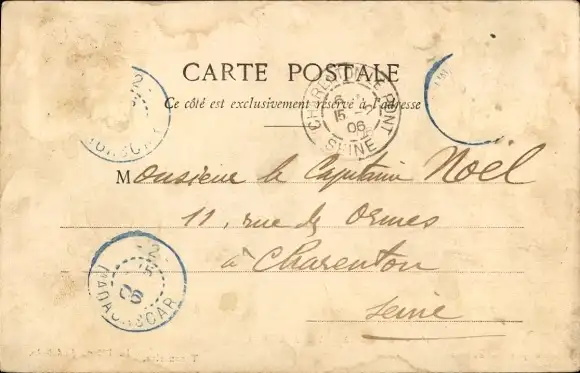 CARTE POSTALE
Ce côté est exclusivement réservé à l'adresse
CHARENTON LE PONT
15
06
SEINE
Monsieur le Capitaine Noël
11, rue des Ormes
à Charenton
Seine
MADAGASCAR
06